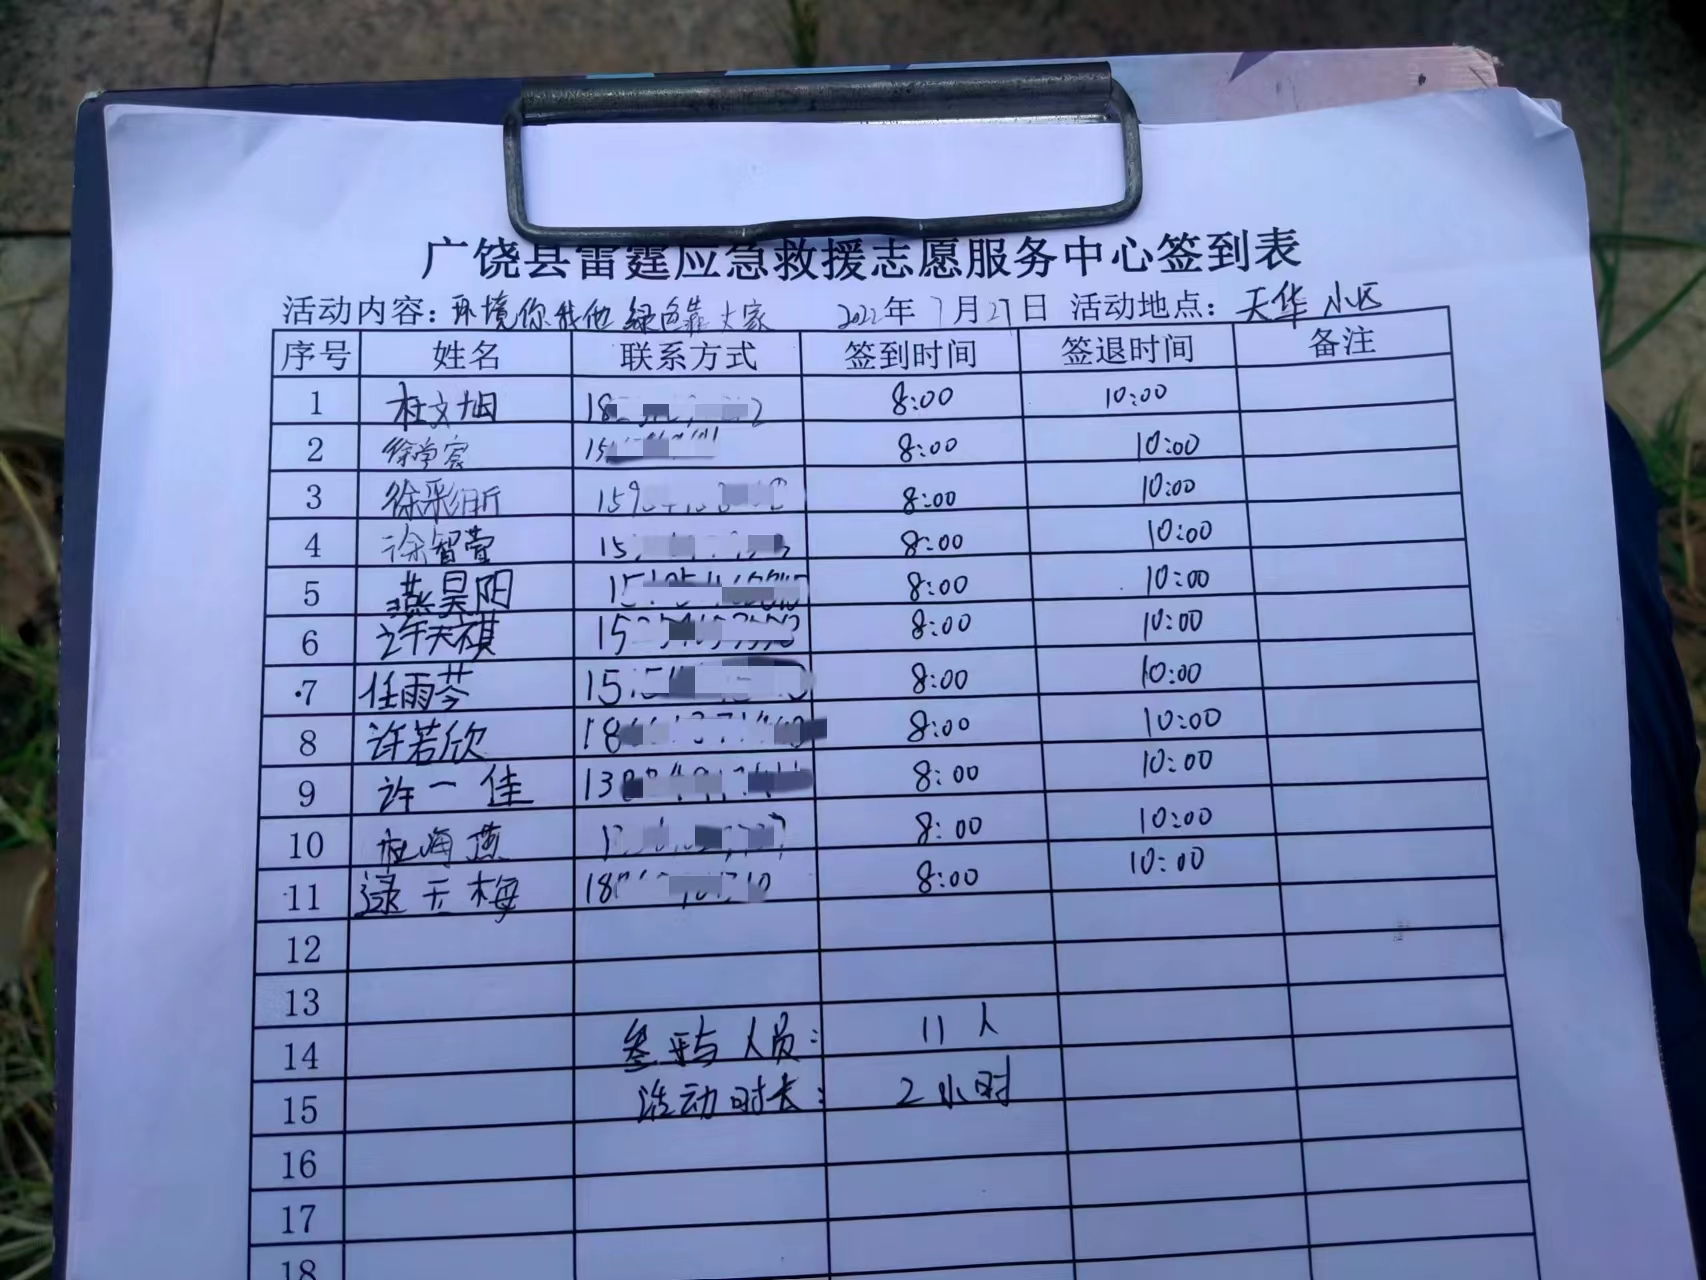 广饶县雷霆应急救援志愿服务中心签到表
活动内容：环境你我他 绿色靠大家 2022年7月27日 活动地点：天华小区
序号 姓名 联系方式 签到时间 签退时间 备注
1 杜文旭 8:00 10:00
2 8:00 10:00
3 8:00 10:00
4 徐智萱 8:00 10:00
5 燕昊阳 8:00 10:00
6 许天祺 8:00 10:00
7 任雨芩 8:00 10:00
8 许若欣 8:00 10:00
9 许一佳 8:00 10:00
10 杜海燕 8:00 10:00
11 逯玉梅 8:00 10:00
12
13
14 参与人员： 11人
15 活动时长： 2小时
16
17
18